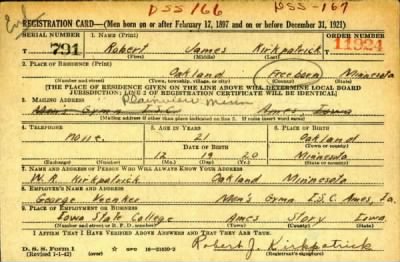 DSS 166 DSS-167
REGISTRATION CARD—(Men born on or after February 17, 1897 and on or before December 31, 1921)
SERIAL NUMBER 1. NAME (Print) ORDER NUMBER
T 791 Robert James Kirkpatrick 11924
(First) (Middle) (Last)
2. PLACE OF RESIDENCE (Print)
Oakland Freeborn Minnesota
(Number and street) (Town, township, village, or city) (County) (State)
[THE PLACE OF RESIDENCE GIVEN ON THE LINE ABOVE WILL DETERMINE LOCAL BOARD
JURISDICTION; LINE 2 OF REGISTRATION CERTIFICATE WILL BE IDENTICAL]
3. MAILING ADDRESS Plainview Minn
Men's Gymn I.S.C. Ames, Iowa
[Mailing address if other than place indicated on line 2. If same insert word same]
4. TELEPHONE 5. AGE IN YEARS 6. PLACE OF BIRTH
none 21 Oakland
DATE OF BIRTH (Town or county)
12 19 20 Minnesota
(Exchange) (Number) (Mo.) (Day) (Yr.) (State or country)
7. NAME AND ADDRESS OF PERSON WHO WILL ALWAYS KNOW YOUR ADDRESS
W.R. Kirkpatrick Oakland Minnesota
8. EMPLOYER'S NAME AND ADDRESS
George Veenker Men's Gymn I.S.C. Ames, Ia.
9. PLACE OF EMPLOYMENT OR BUSINESS
Iowa State College Ames Story Iowa
(Number and street or R. F. D. number) (Town) (County) (State)
I AFFIRM THAT I HAVE VERIFIED ABOVE ANSWERS AND THAT THEY ARE TRUE.
D. S. S. Form 1 GPO 16—21630-2 Robert J. Kirkpatrick
(Revised 1-1-42) (over) (Registrant's signature)